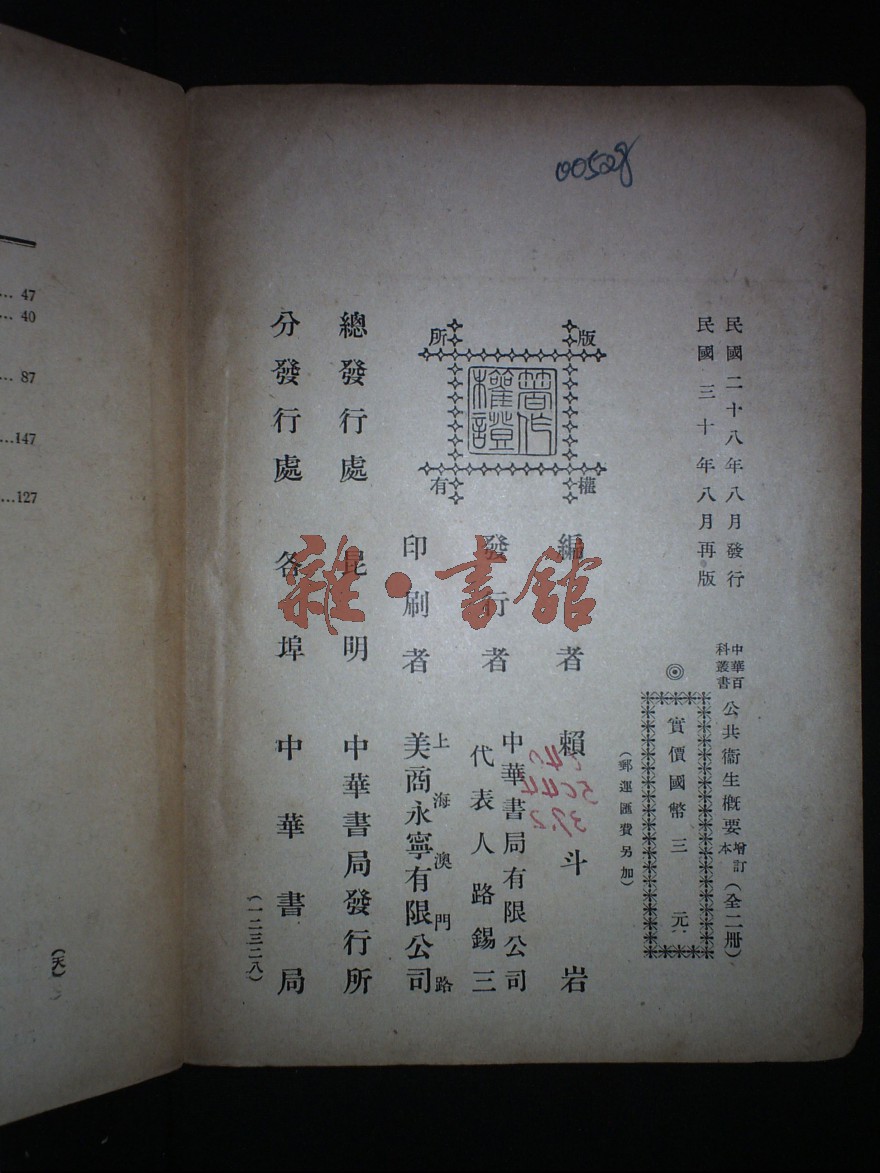 00528
民國二十八年八月發行
民國三十年八月再版
中華百科叢書
公共衞生概要
增訂本
(全二冊)
◎
實價國幣三元
(郵運匯費另加)
版權所有
著作權證
編者 賴斗岩
發行者 中華書局有限公司
代表人路錫三
印刷者 上海澳門路
美商永寧有限公司
總發行處 昆明 中華書局發行所
分發行處 各埠 中華書局
(一二三二八)
雜·書館
... 47
... 40
... 87
...147
...127
(天)